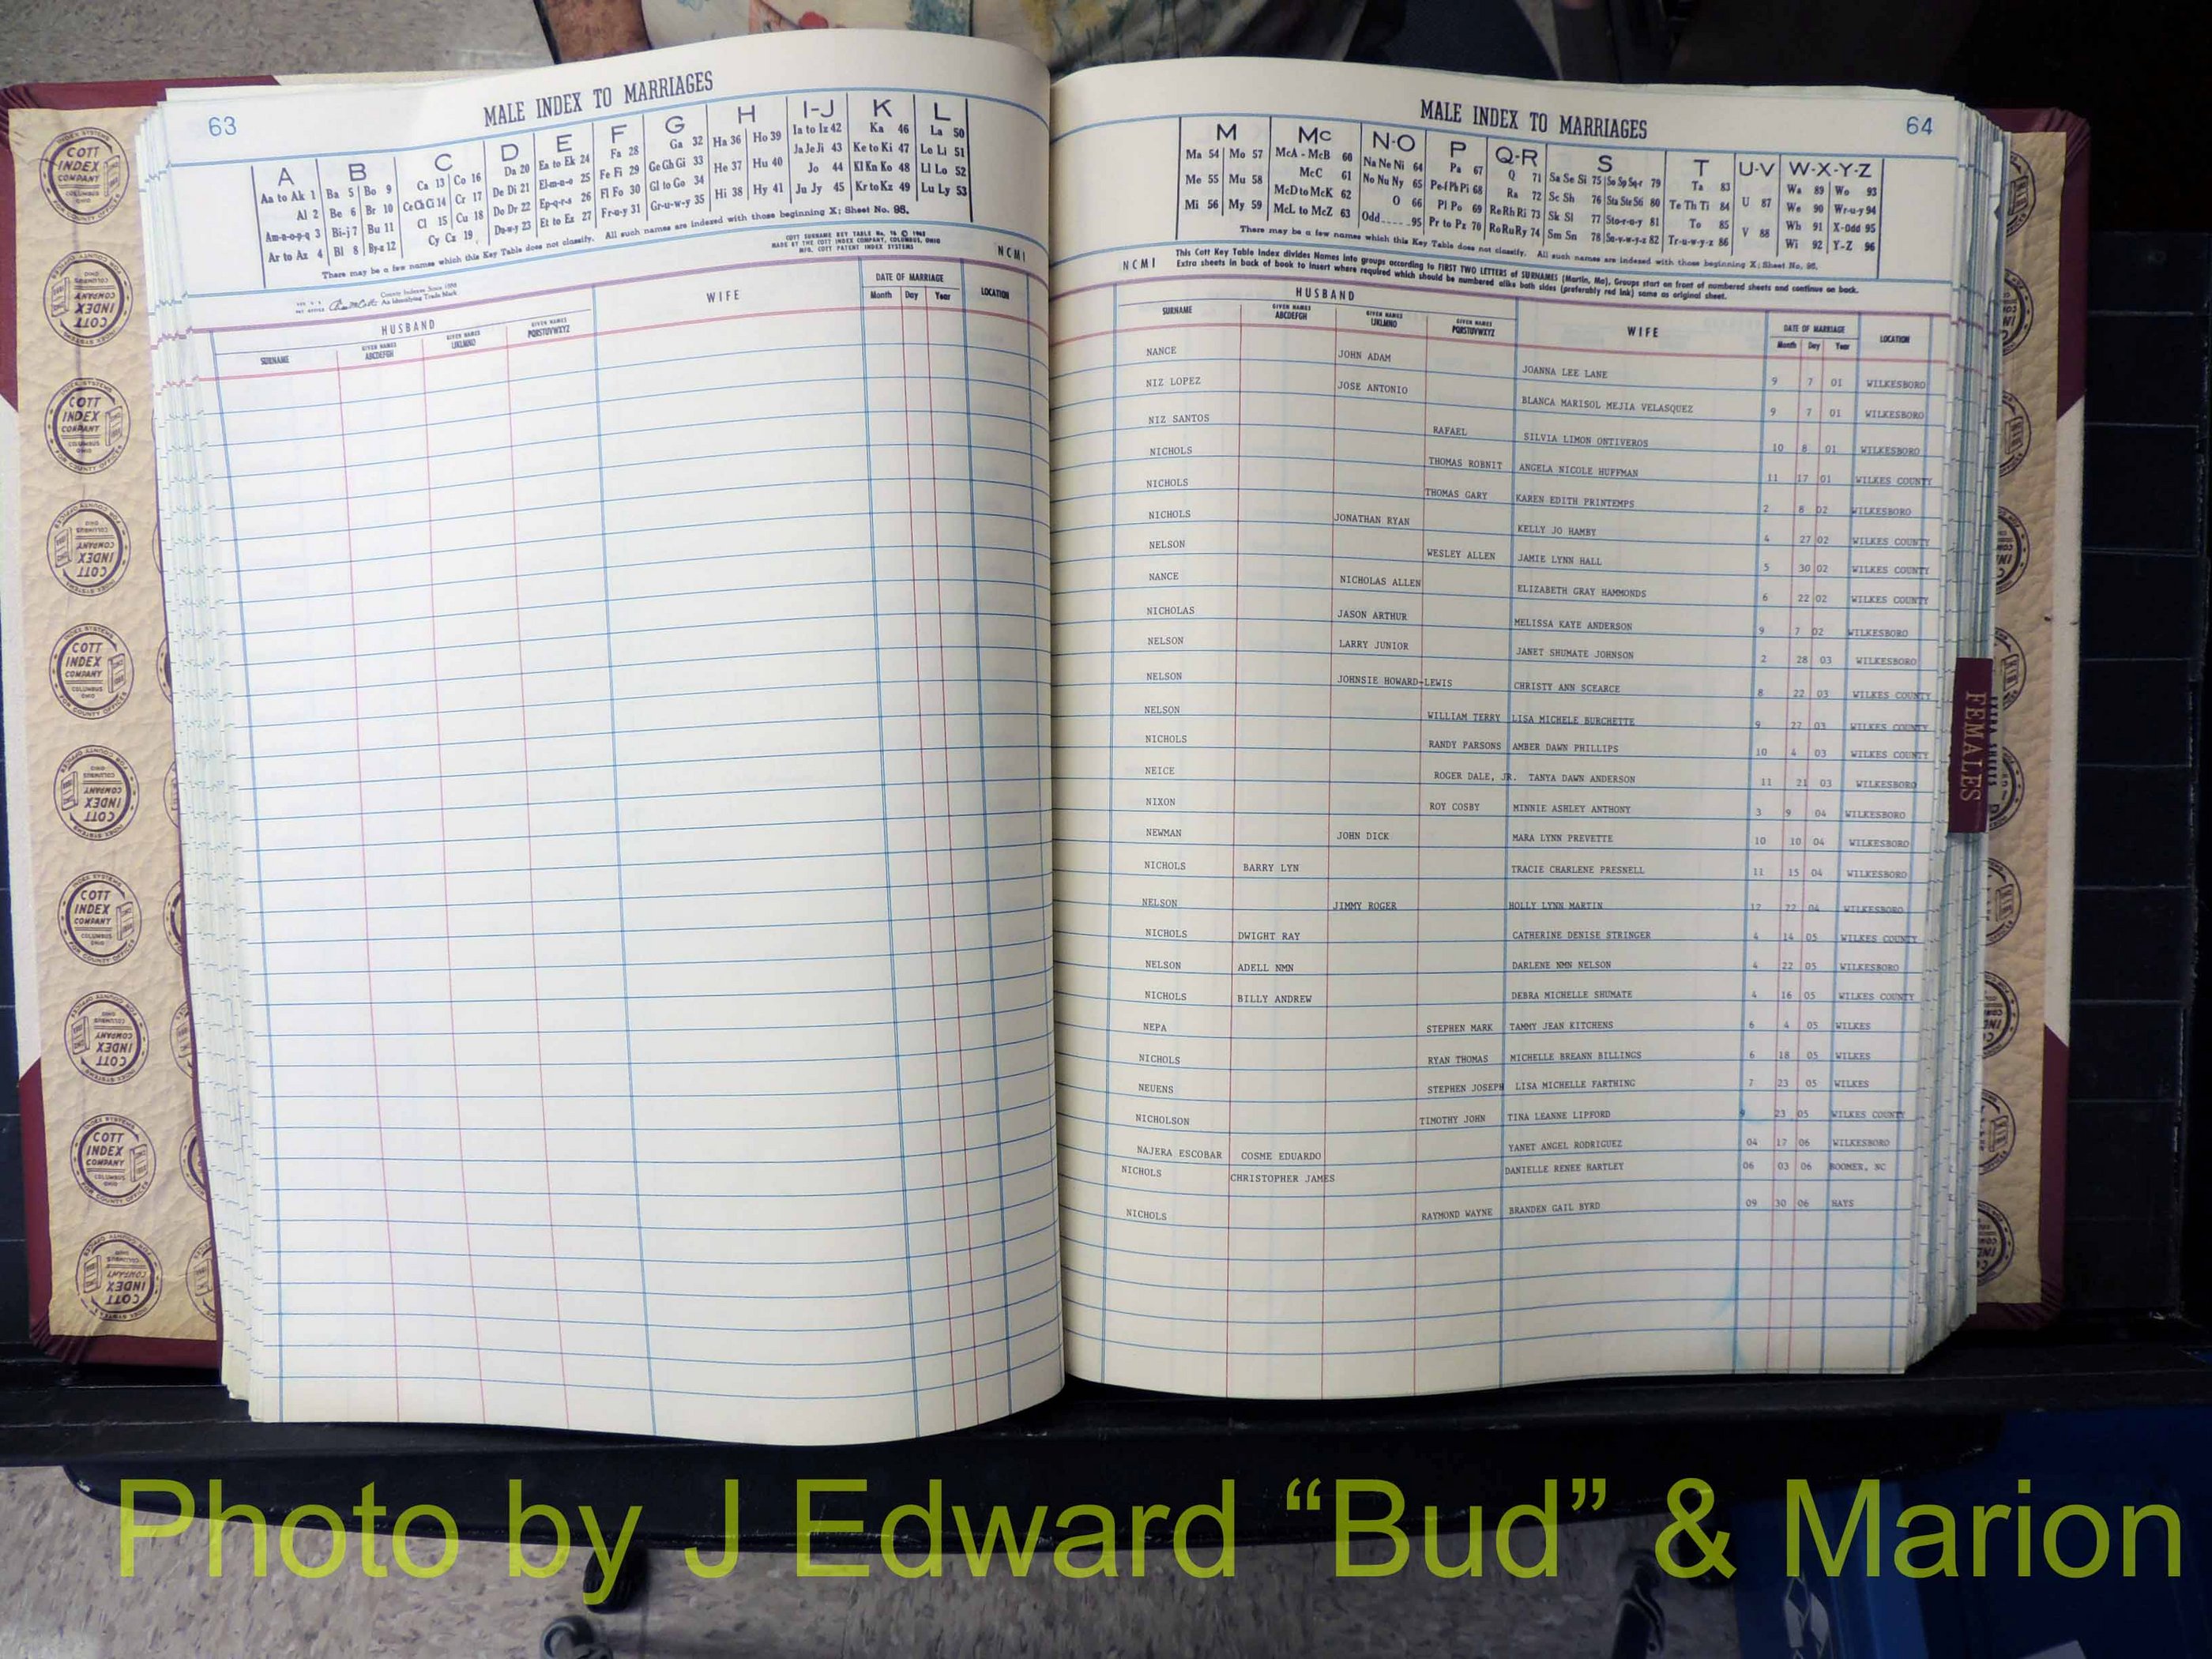 63
MALE INDEX TO MARRIAGES
A B C D E F G H I-J K L
Aa to Ak 1 Ba 5 Bo 9 Ca 13 Co 16 Da 20 Ea to Ek 24 Fa 28 Ga 32 Ha 36 Ho 39 Ia to Iz 42 Ka 46 La 50
Al 2 Be 6 Br 10 Ce Ch Ci 14 Cr 17 De Di 21 El-m-n-o 25 Fe Fi 29 Ge Gh Gi 33 He 37 Hu 40 Ja Je Ji 43 Ke to Ki 47 Le Li 51
Am-n-o-p-q 3 Bi-j 7 Bu 11 Cl 15 Cu 18 Do Dr 22 Ep-q-r-s 26 Fl Fo 30 Gl to Go 34 Hi 38 Hy 41 Jo 44 Kl Kn Ko 48 Ll Lo 52
Ar to Az 4 Bl 8 By-z 12 Cy Cz 19 Du-w-y 23 Et to Ez 27 Fr-u-y 31 Gr-u-w-y 35 Ju Jy 45 Kr to Kz 49 Lu Ly 53
There may be a few names which this Key Table does not classify. All such names are indexed with those beginning X; Sheet No. 95.
COTT SURNAME KEY TABLE No. 16 ©
MADE BY THE COTT INDEX COMPANY, COLUMBUS, OHIO
MFG. COTT PATENT INDEX SYSTEMS
NCMI
County Indexes Since 1888
An Identifying Trade Mark
HUSBAND WIFE DATE OF MARRIAGE LOCATION
SURNAME GIVEN NAMES ABCDEFGH GIVEN NAMES IJKLMNO GIVEN NAMES PQRSTUVWXYZ Month Day Year
64
MALE INDEX TO MARRIAGES
M Mc N-O P Q-R S T U-V W-X-Y-Z
Ma 54 Mo 57 McA - McB 60 Na Ne Ni 64 Pa 67 Q 71 Sa Se Si 75 So Sp Sq-r 79 Ta 83 U 87 Wa 89 Wo 93
Me 55 Mu 58 McC 61 No Nu Ny 65 Pe-f Ph Pi 68 Ra 72 Sc Sh 76 Sta Ste S6 80 Te Th Ti 84 We 90 Wr-u-y 94
Mi 56 My 59 McD to McK 62 O 66 Pl Po 69 Re Rh Ri 73 Sk Sl 77 Sto-r-u-y 81 To 85 V 88 Wh 91 X-Odd 95
McL to McZ 63 Odd 95 Pr to Pz 70 Ro Ru Ry 74 Sm Sn 78 Su-v-w-y-z 82 Tr-u-w-y-z 86 Wi 92 Y-Z 96
There may be a few names which this Key Table does not classify. All such names are indexed with those beginning X; Sheet No. 95.
NCMI
This Cott Key Table Index divides Names into groups according to FIRST TWO LETTERS of SURNAMES (Martin, Ma). Groups start on front of numbered sheets and continue on back.
Extra sheets in back of book to insert where required which should be numbered alike both sides (preferably red ink) same as original sheet.
HUSBAND WIFE DATE OF MARRIAGE LOCATION
SURNAME GIVEN NAMES ABCDEFGH GIVEN NAMES IJKLMNO GIVEN NAMES PQRSTUVWXYZ Month Day Year
NANCE JOHN ADAM JOANNA LEE LANE 9 7 01 WILKESBORO
NIZ LOPEZ JOSE ANTONIO BLANCA MARISOL MEJIA VELASQUEZ 9 7 01 WILKESBORO
NIZ SANTOS RAFAEL SILVIA LIMON ONTIVEROS 10 8 01 WILKESBORO
NICHOLS THOMAS ROBNIT ANGELA NICOLE HUFFMAN 11 17 01 WILKES COUNTY
NICHOLS THOMAS GARY KAREN EDITH PRINTEMPS 2 8 02 WILKESBORO
NICHOLS JONATHAN RYAN KELLY JO HAMBY 4 27 02 WILKES COUNTY
NELSON WESLEY ALLEN JAMIE LYNN HALL 5 30 02 WILKES COUNTY
NANCE NICHOLAS ALLEN ELIZABETH GRAY HAMMONDS 6 22 02 WILKES COUNTY
NICHOLAS JASON ARTHUR MELISSA KAYE ANDERSON 9 7 02 WILKESBORO
NELSON LARRY JUNIOR JANET SHUMATE JOHNSON 2 28 03 WILKESBORO
NELSON JOHNSIE HOWARD-LEWIS CHRISTY ANN SCEARCE 8 22 03 WILKES COUNTY
NELSON WILLIAM TERRY LISA MICHELE BURCHETTE 9 27 03 WILKES COUNTY
NICHOLS RANDY PARSONS AMBER DAWN PHILLIPS 10 4 03 WILKES COUNTY
NEICE ROGER DALE, JR. TANYA DAWN ANDERSON 11 21 03 WILKESBORO
NIXON ROY COSBY MINNIE ASHLEY ANTHONY 3 9 04 WILKESBORO
NEWMAN JOHN DICK MARA LYNN PREVETTE 10 10 04 WILKESBORO
NICHOLS BARRY LYN TRACIE CHARLENE PRESNELL 11 15 04 WILKESBORO
NELSON JIMMY ROGER HOLLY LYNN MARTIN 12 22 04 WILKESBORO
NICHOLS DWIGHT RAY CATHERINE DENISE STRINGER 4 14 05 WILKES COUNTY
NELSON ADELL NMN DARLENE NMN NELSON 4 22 05 WILKESBORO
NICHOLS BILLY ANDREW DEBRA MICHELLE SHUMATE 4 16 05 WILKES COUNTY
NEPA STEPHEN MARK TAMMY JEAN KITCHENS 6 4 05 WILKES
NICHOLS RYAN THOMAS MICHELLE BREANN BILLINGS 6 18 05 WILKES
NEUENS STEPHEN JOSEPH LISA MICHELLE FARTHING 7 23 05 WILKES
NICHOLSON TIMOTHY JOHN TINA LEANNE LIPFORD 9 23 05 WILKES COUNTY
NAJERA ESCOBAR COSME EDUARDO YANET ANGEL RODRIGUEZ 04 17 06 WILKESBORO
NICHOLS CHRISTOPHER JAMES DANIELLE RENEE HARTLEY 06 03 06 BOOMER, NC
NICHOLS RAYMOND WAYNE BRANDEN GAIL BYRD 09 30 06 HAYS
FEMALES
COTT INDEX COMPANY
COLUMBUS OHIO
INDEX SYSTEMS
FOR COUNTY OFFICES
Photo by J Edward “Bud” & Marion